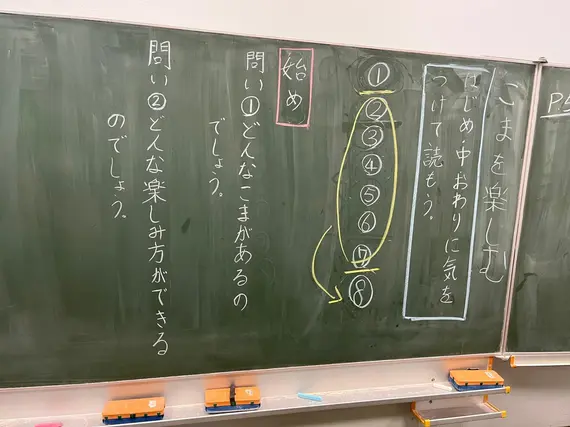 こまを楽しむ
はじめ・中おわりに気を
つけて読もう。
①
②
③
④
⑤
⑥
⑦
⑧
始め
問い①どんなこまがあるの
でしょう。
問い②どんな楽しみ方ができる
のでしょう。